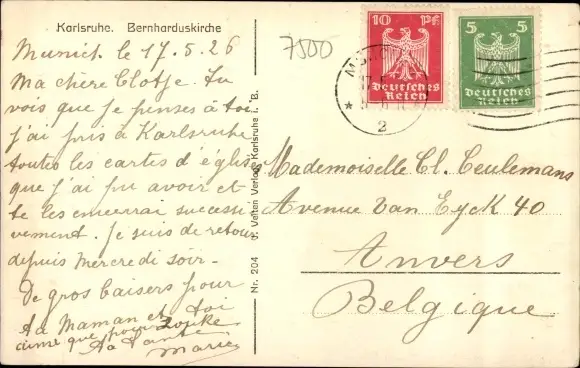 Karlsruhe. Bernharduskirche
7500
Munich le 17.5.26
Ma chère Clotje. Tu
vois que je penses à toi
j'ai pris à Karlsruhe
toutes les cartes d'églises
que j'ai pu avoir et
te les enverrai successi
vement. Je suis de retour
depuis Mercredi soir-
De gros baisers pour
ta Maman et toi
ainsi que pour
Ta Tante
Marie
Nr. 204
Velten Verlag Karlsruhe i. B.
10 Pf
Deutsches
Reich
5 5
Deutsches
Reich
2
Mademoiselle Cl. Ceulemans
Avenue Van Eyck 40
Anvers
Belgique